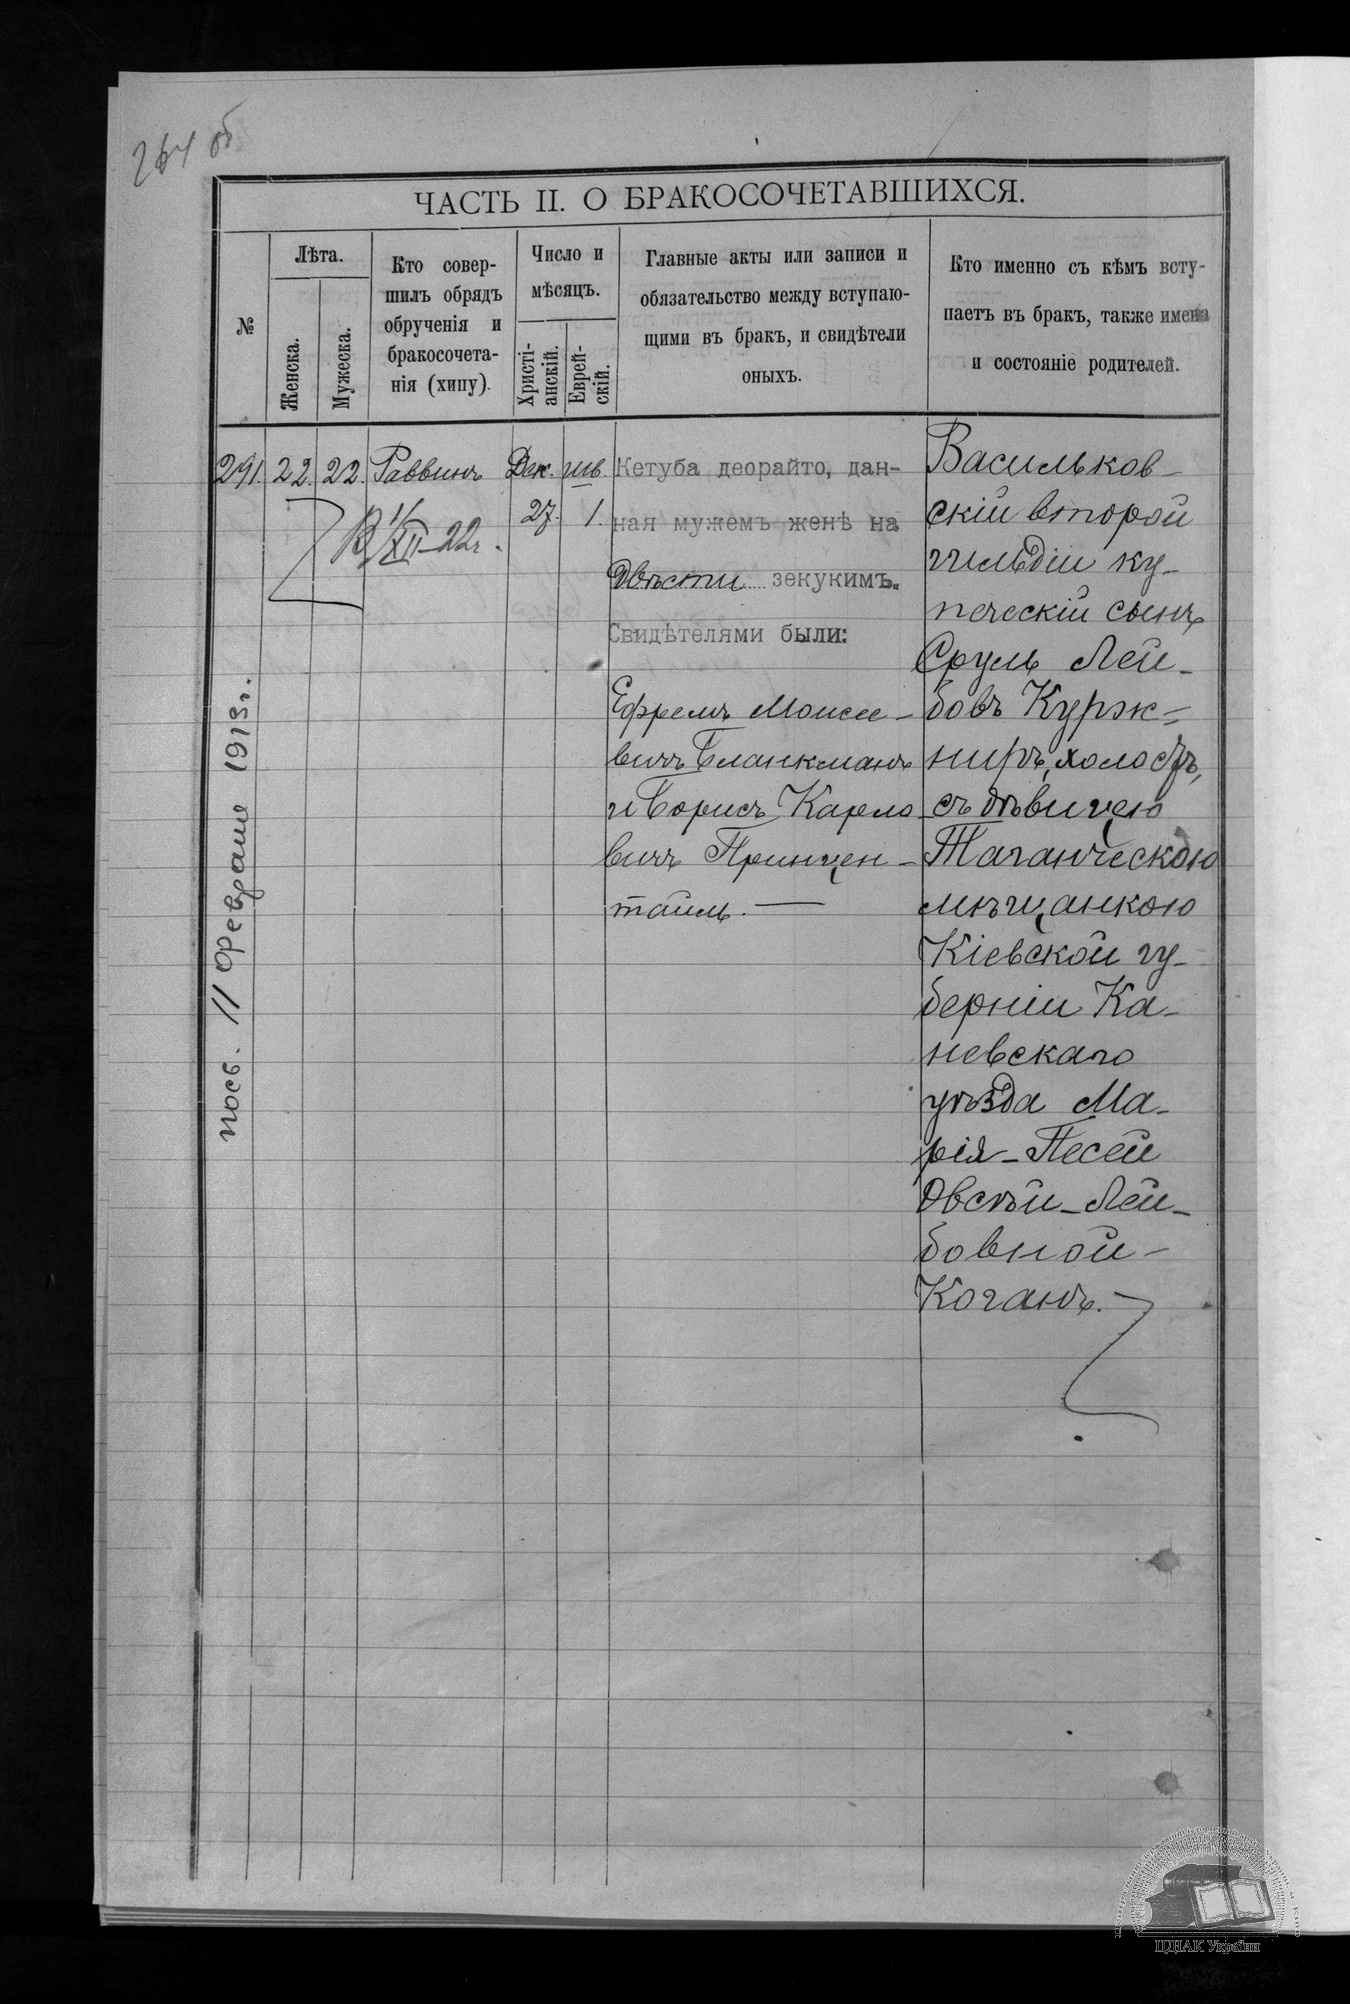 264 об
ЧАСТЬ II. О БРАКОСОЧЕТАВШИХСЯ.
№
Лѣта.
Женска.
Мужеска.
Кто совер-
шилъ обрядъ
обрученія и
бракосочета-
нія (хипу).
Число и
мѣсяцъ.
Христі-
анскій.
Еврей-
скій.
Главные акты или записи и
обязательство между вступаю-
щими въ бракъ, и свидѣтели
оныхъ.
Кто именно съ кѣмъ всту-
паетъ въ бракъ, также имена
и состояніе родителей.
291. 22. 22. Раввинъ Дек. шв.
27. 1.
XII-22г.
Кетуба деорайто, дан-
ная мужемъ женѣ на
двѣсти зекукимъ.
Свидѣтелями были:
Ефремъ Моисее-
вичъ Бланкманъ
и Борисъ Карло
вичъ Принцен-
таиль.—
Васильков-
скій второй
гильдіи ку-
печескій сынъ
Сруль Лей-
бовъ Курж-
ниръ, холостъ,
съ дѣвицею
Таганческою
мѣщанкою
Кіевской гу-
берніи Ка-
невскаго
уѣзда Ма-
рія-Песей
Овсѣй-Лей-
бовной-
Коганъ.
пось. 11 Февраля 1913г.
ЦДІАК України